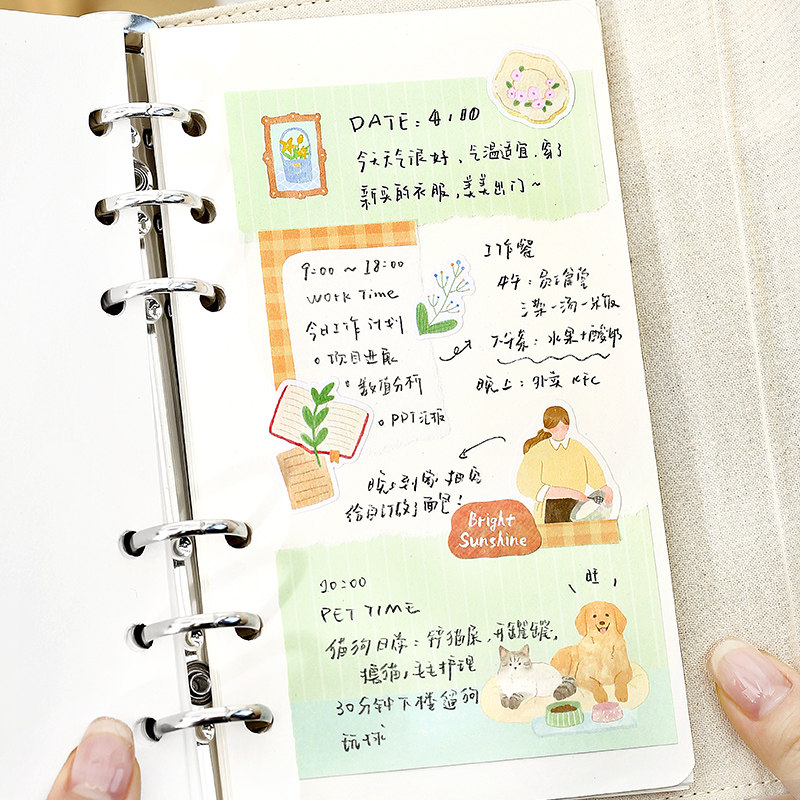 DATE: 4.10
今天天气很好、气温适宜.穿了
新买的衣服,美美出门~
9:00 ~ 18:00
Work Time
今日工作计划
项目进展
数值分析
PPT汇报
工作餐
中午:员工食堂
三菜一汤一米饭
下午茶:水果+酸奶
晚上:外卖 KFC
晚上到家
给自己做了面包!
Bright
Sunshine
20:00
PET TIME
猫狗日常:铲猫屎,开罐罐,
撸猫,毛毛护理
30分钟下楼遛狗
玩球
旺